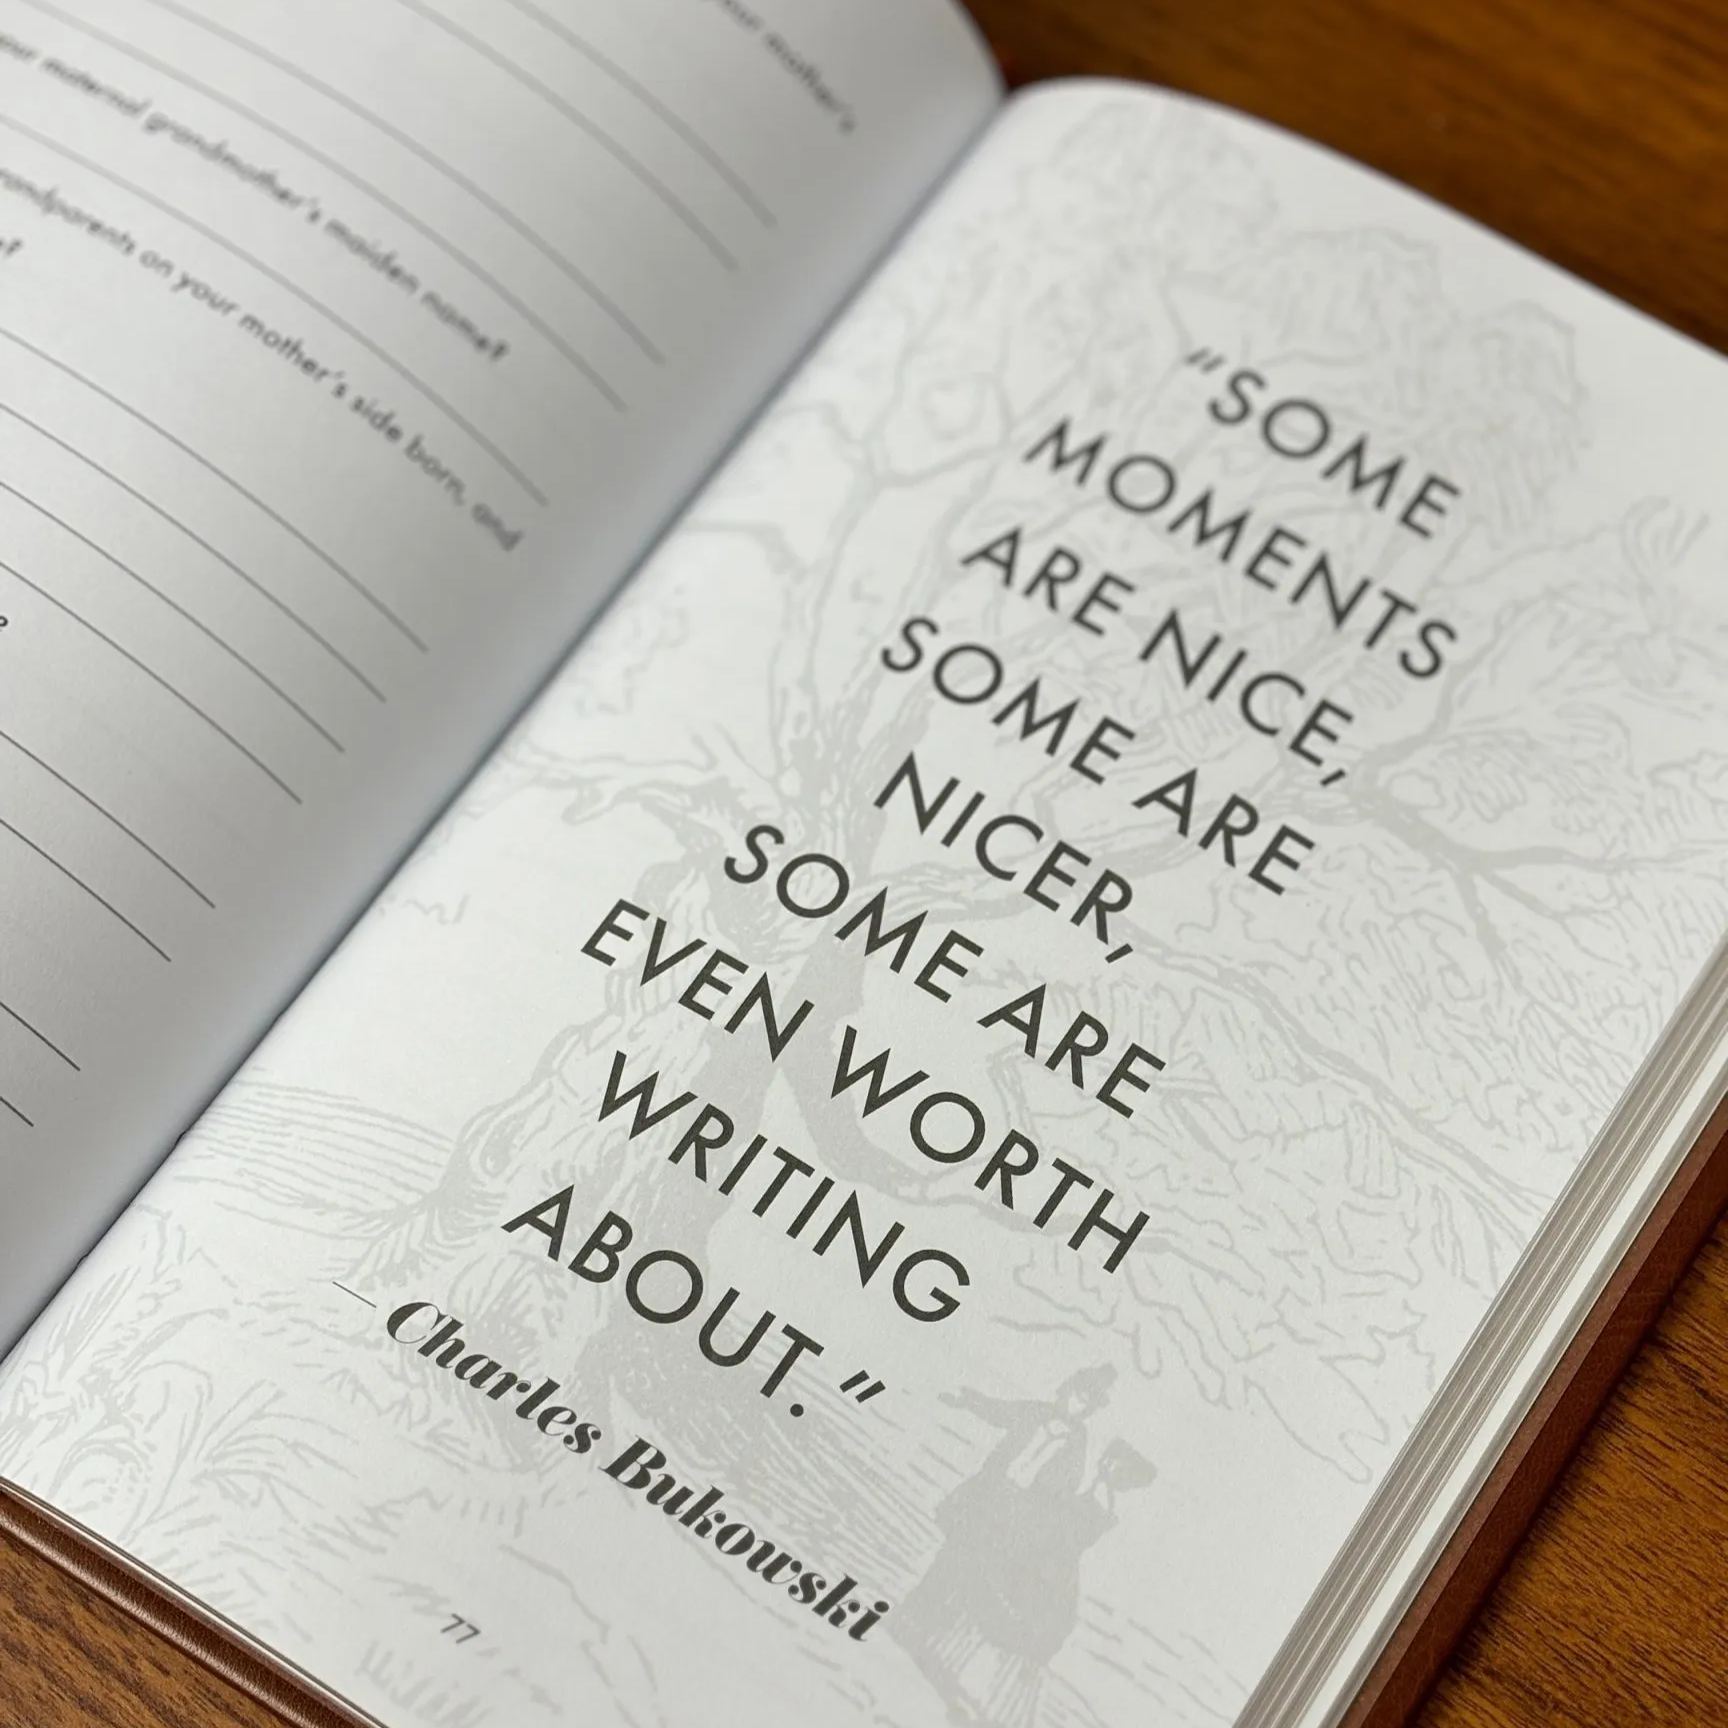 your mother's
your maternal grandmother's maiden name?
grandparents on your mother's side born, and
"SOME
MOMENTS
ARE NICE,
SOME ARE
NICER,
SOME ARE
EVEN WORTH
WRITING
ABOUT."
— Charles Bukowski
77